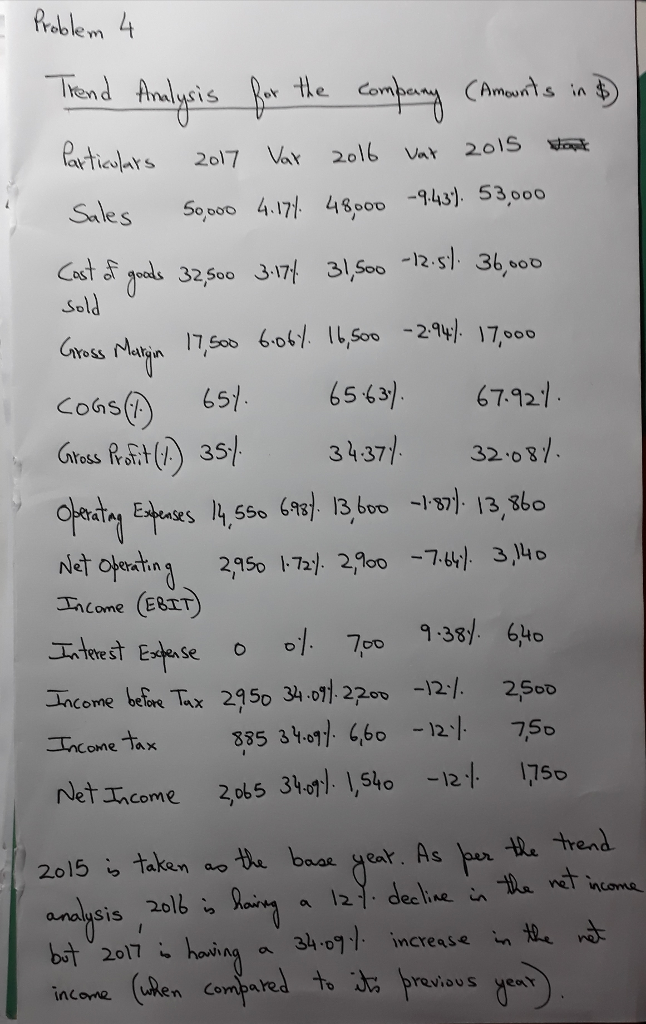 Problem 4
Trend Analysis for the company (Amounts in $)
Particulars 2017 Var 2016 Var 2015
Sales 50,000 4.17% 48,000 -9.43% 53,000
Cost of goods 32,500 3.17% 31,500 -12.5% 36,000
sold
Gross Margin 17,500 6.06% 16,500 -2.94% 17,000
COGS(%) 65% 65.63% 67.92%
Gross Profit(%) 35% 34.37% 32.08%
Operating Expenses 14,550 6.98% 13,600 -1.87% 13,860
Net Operating 2,950 1.72% 2,900 -7.64% 3,140
Income (EBIT)
Interest Expense 0 0% 7,00 9.38% 6,40
Income before Tax 2,950 34.09% 2,200 -12% 2,500
Income tax 885 34.09% 6,60 -12% 7,50
Net Income 2,065 34.09% 1,540 -12% 1,750
2015 is taken as the base year. As per the trend
analysis, 2016 is having a 12% decline in the net income
but 2017 is having a 34.09% increase in the net
income (when compared to its previous year).